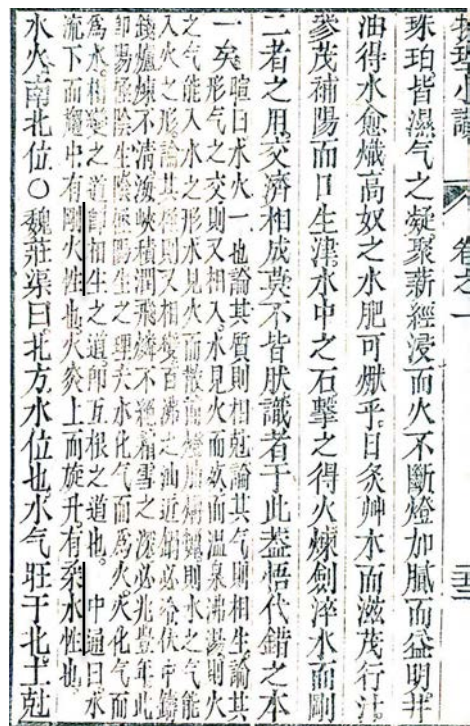 物理小識 卷之一 三
珠珀皆濕气之凝聚薪經浸而火不斷燈加膩而益明井
油得水愈熾高奴之水肥可㸐乎日炙艸水而滋茂行汗
參茂補陽而口生津水中之石擊之得火煉劍淬水而剛
二者之用交濟相成莫不皆肰識者于此葢悟代錯之本
一矣 暄曰水火一也論其質則相尅論其气則相生論其
形气之交則又相入水見火而沸而溫泉沸湯則火
之气能入水之形水見火而散 則水之气能
入火之形論其極則又相變百沸之油近 必
錢爐煉不清 積潤飛燐不 霜雪之深必兆豐年此
卽陽極陰生陰極陽生之理 水化气而爲火火化气而
爲水相變之道卽相生之道卽互根之道也 中通曰水
流下而 中有剛火性也火炎上而旋升有柔水性也
水火南北位○魏莊渠曰北方水位也水气旺于北土尅